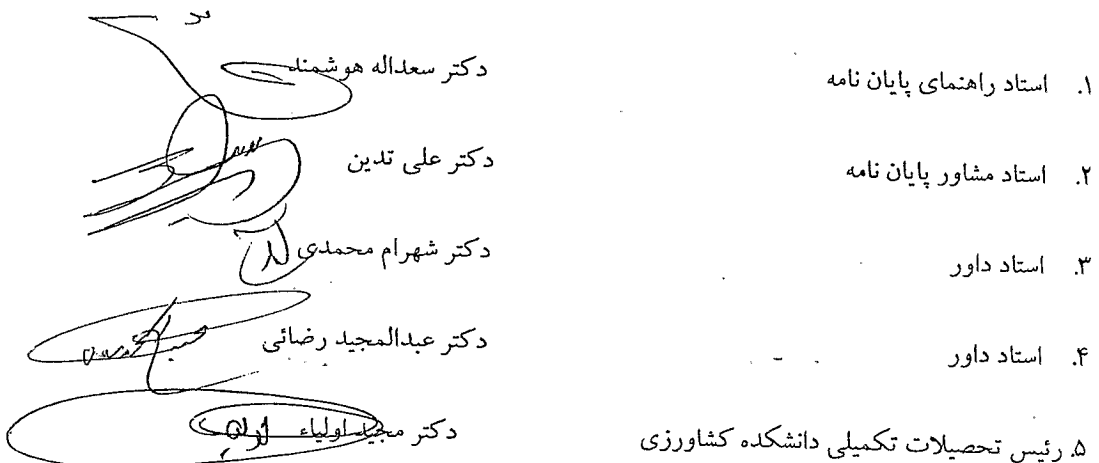 ۱. استاد راهنمای پایان نامه دکتر سعداله هوشمند
۲. استاد مشاور پایان نامه دکتر علی تدین
۳. استاد داور دکتر شهرام محمدی
۴. استاد داور دکتر عبدالمجید رضائی
۵. رئیس تحصیلات تکمیلی دانشکده کشاورزی دکتر مجید اولیاء